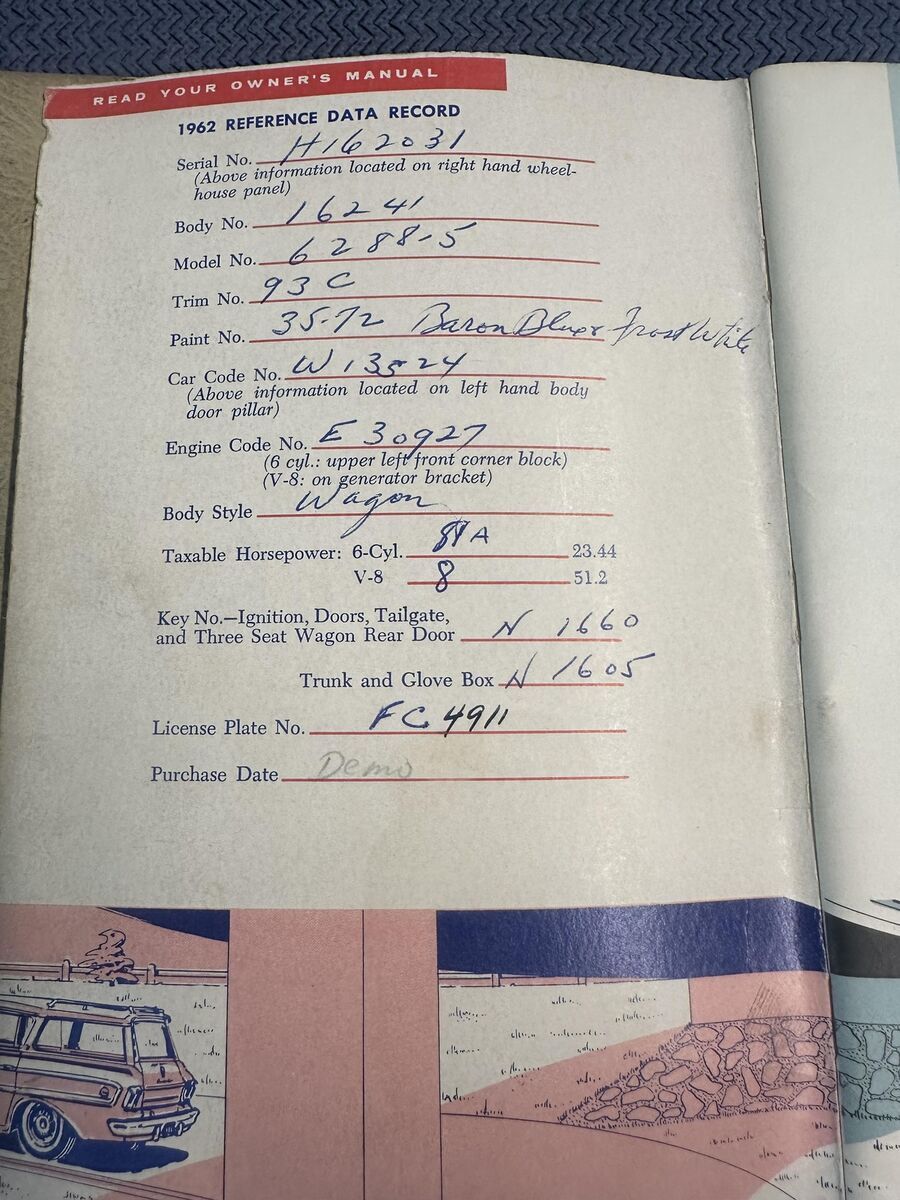 READ YOUR OWNER'S MANUAL
1962 REFERENCE DATA RECORD
Serial No. H162031
(Above information located on right hand wheel-
house panel)
Body No. 16241
Model No. 6288-5
Trim No. 93 C
Paint No. 35-72 Baron Blue & Frost White
Car Code No. W 13524
(Above information located on left hand body
door pillar)
Engine Code No. E 30927
(6 cyl.: upper left front corner block)
(V-8: on generator bracket)
Body Style Wagon
Taxable Horsepower: 6-Cyl. NA 23.44
V-8 8 51.2
Key No.—Ignition, Doors, Tailgate,
and Three Seat Wagon Rear Door N 1660
Trunk and Glove Box N 1605
License Plate No. FC 4911
Purchase Date Demo